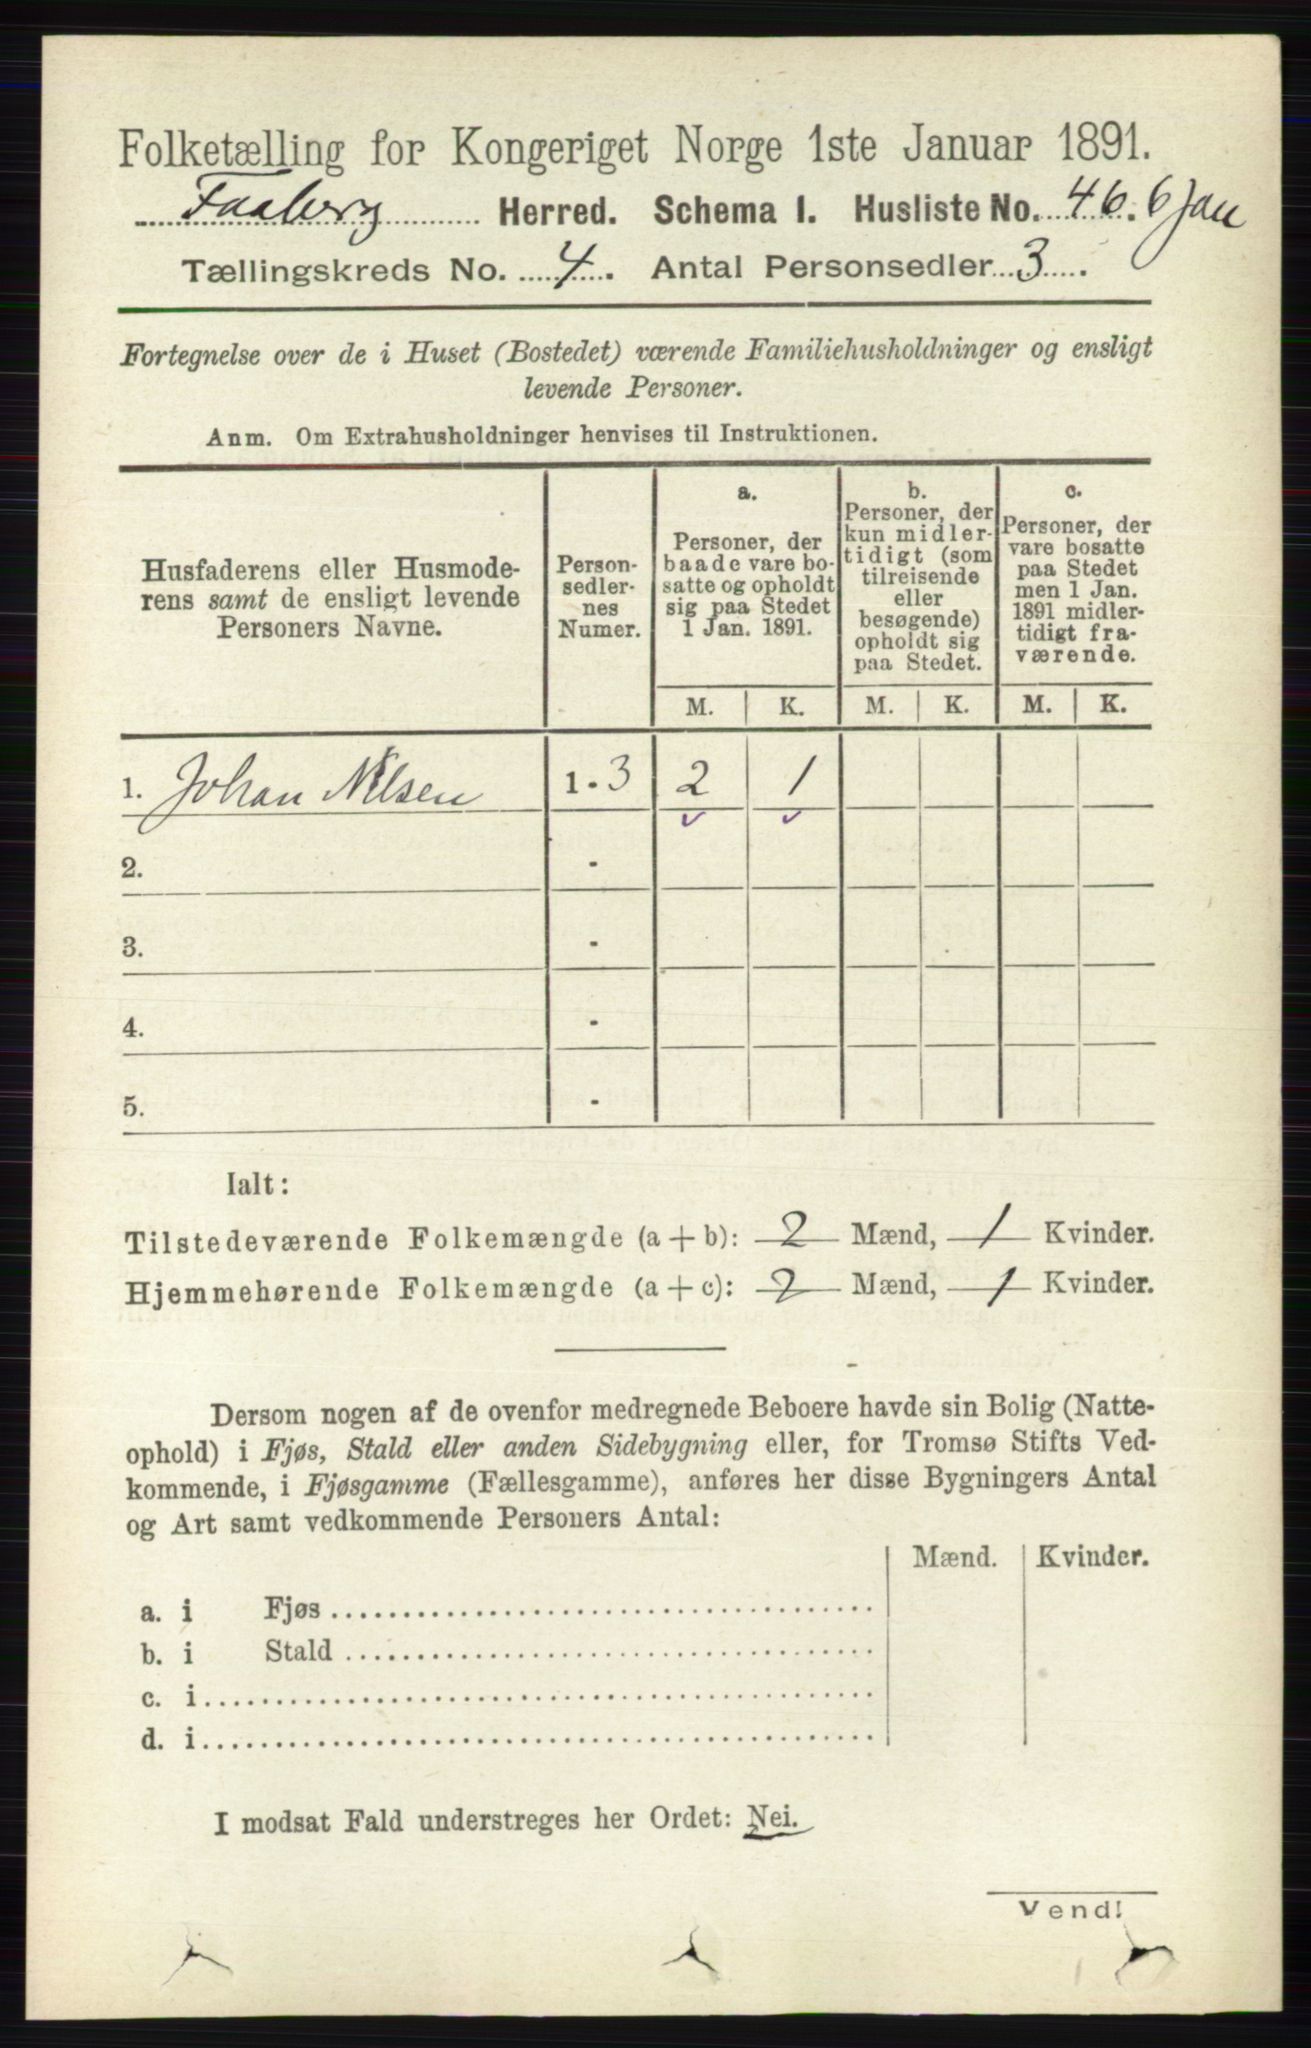 Folketælling for Kongeriget Norge 1ste Januar 1891.
Faaberg Herred. Schema I. Husliste No. 46. 6 Jan
Tællingskreds No. 4. Antal Personsedler 3.
Fortegnelse over de i Huset (Bostedet) værende Familiehusholdninger og ensligt
levende Personer.
Anm. Om Extrahusholdninger henvises til Instruktionen.
Husfaderens eller Husmode-
rens samt de ensligt levende
Personers Navne.
Person-
sedler-
nes
Numer.
a.
Personer, der
baade vare bo-
satte og opholdt
sig paa Stedet
1 Jan. 1891.
b.
Personer, der
kun midler-
tidigt (som
tilreisende
eller
besøgende)
opholdt sig
paa Stedet.
c.
Personer, der
vare bosatte
paa Stedet
men 1 Jan.
1891 midler-
tidigt fra-
værende.
M. K. M. K. M. K.
1. Johan Nilsen 1 - 3 2 1
2. -
3. -
4. -
5. -
Ialt:
Tilstedeværende Folkemængde (a + b): 2 Mænd, 1 Kvinder.
Hjemmehørende Folkemængde (a + c): 2 Mænd, 1 Kvinder.
Dersom nogen af de ovenfor medregnede Beboere havde sin Bolig (Natte-
ophold) i Fjøs, Stald eller anden Sidebygning eller, for Tromsø Stifts Ved-
kommende, i Fjøsgamme (Fællesgamme), anføres her disse Bygningers Antal
og Art samt vedkommende Personers Antal:
Mænd. Kvinder.
a. i Fjøs
b. i Stald
c. i
d. i
I modsat Fald understreges her Ordet: Nei.
Vend!